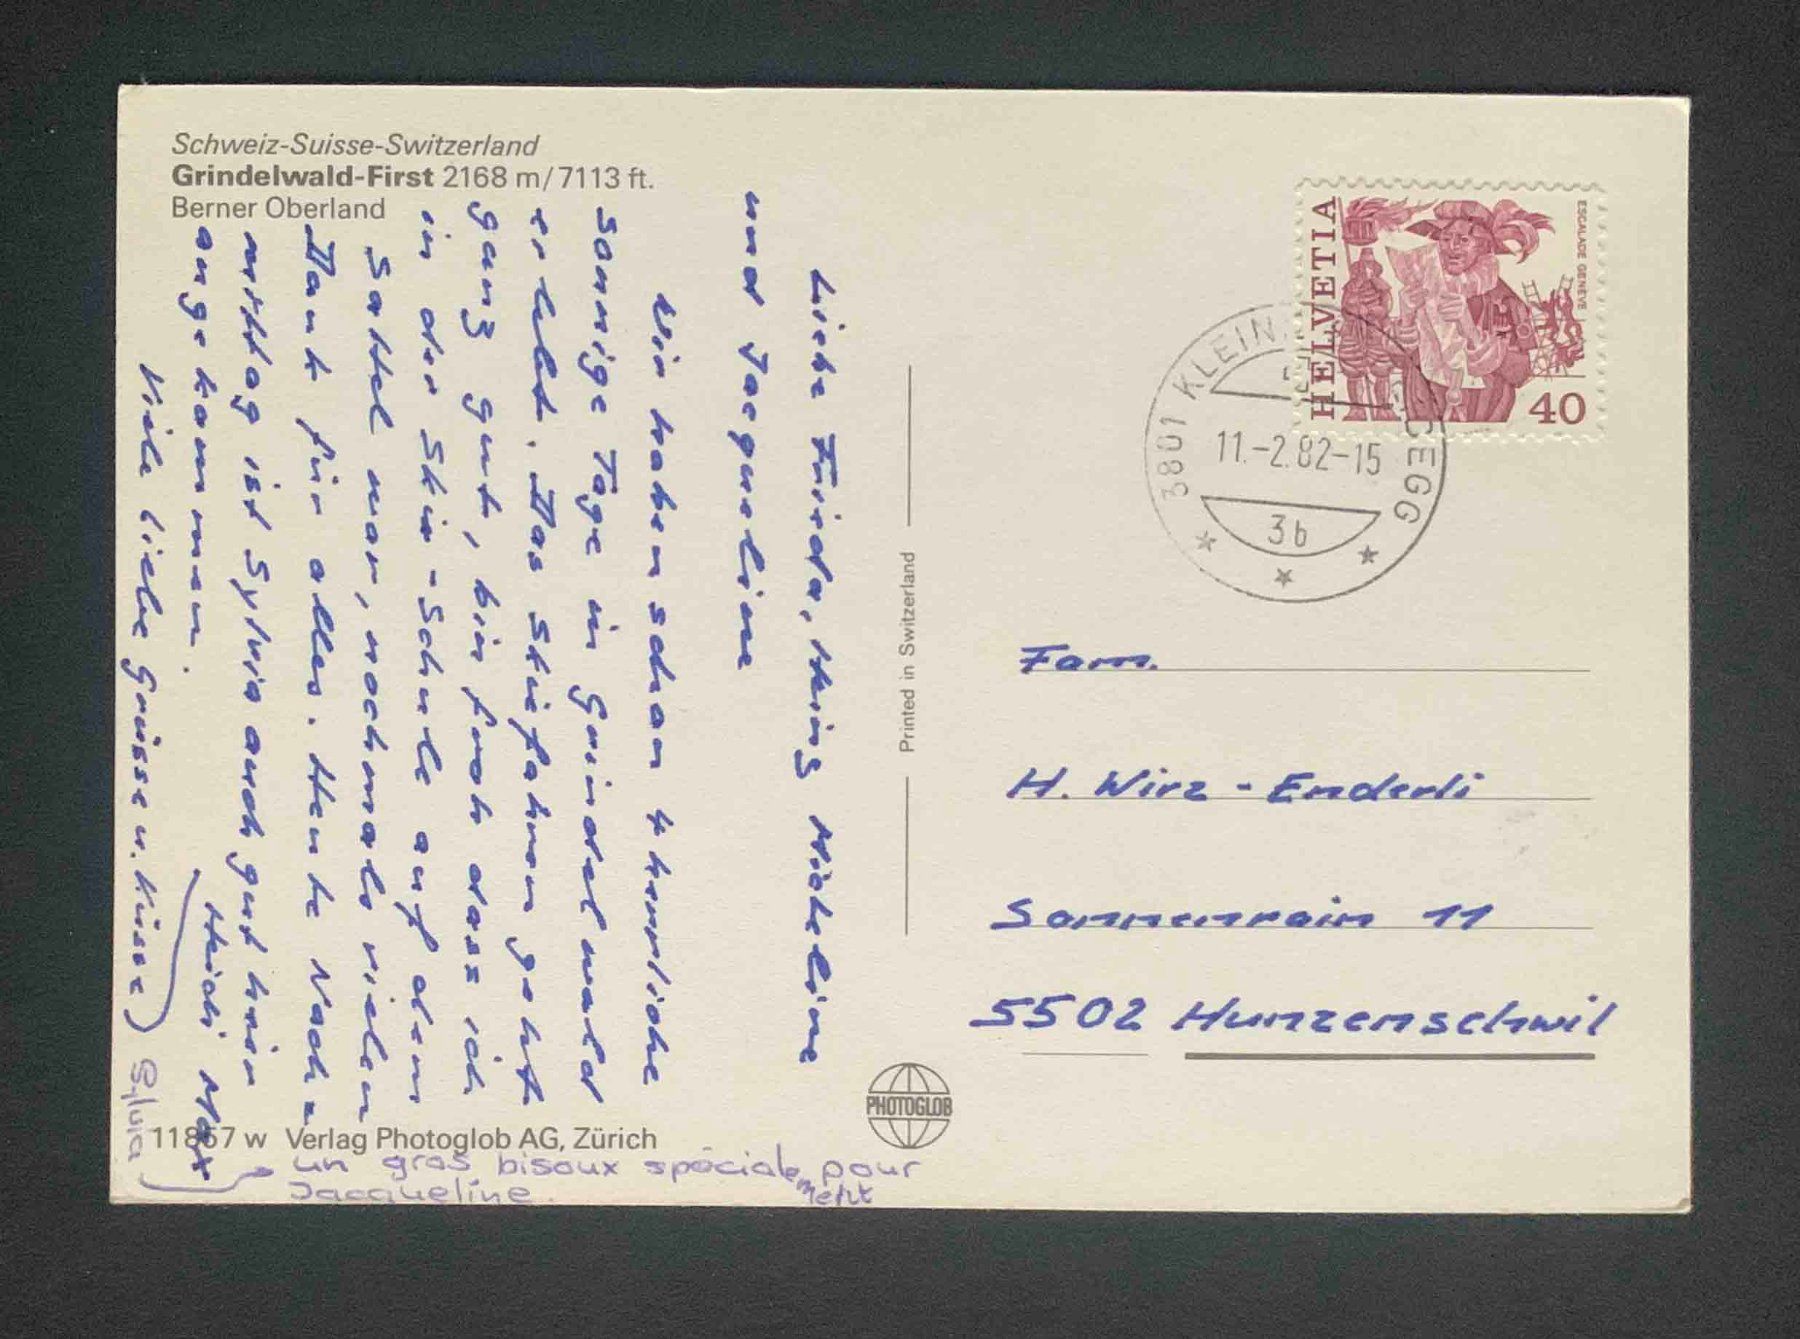 Schweiz-Suisse-Switzerland
Grindelwald-First 2168 m/7113 ft.
Berner Oberland
Liebe Frieda, Heinz Micheline
und Jacqueline
Wir haben schon 4 herrliche
sonnige Tage in Grindelwald
erlebt. Das Skifahren geht
ganz gut, bin froh dass ich
in der Ski-Schule auf dem
Sattel war, nochmals vielen
Dank für alles. Heute Nach-
mittag ist Sylvia auch gut hier
angekommen.
Viele liebe Grüsse u. Küsse
Heidi Max
Sylvia
un gros bisoux spécialement pour
Jacqueline.
11867 w Verlag Photoglob AG, Zürich
Printed in Switzerland
PHOTOGLOB
HELVETIA
ESCALADE GENÈVE
40
3801 KLEINE SCHEIDEGG
11.-2.82-15
3b
Fam.
H. Wirz - Enderli
Sonnenrain 11
5502 Hunzenschwil